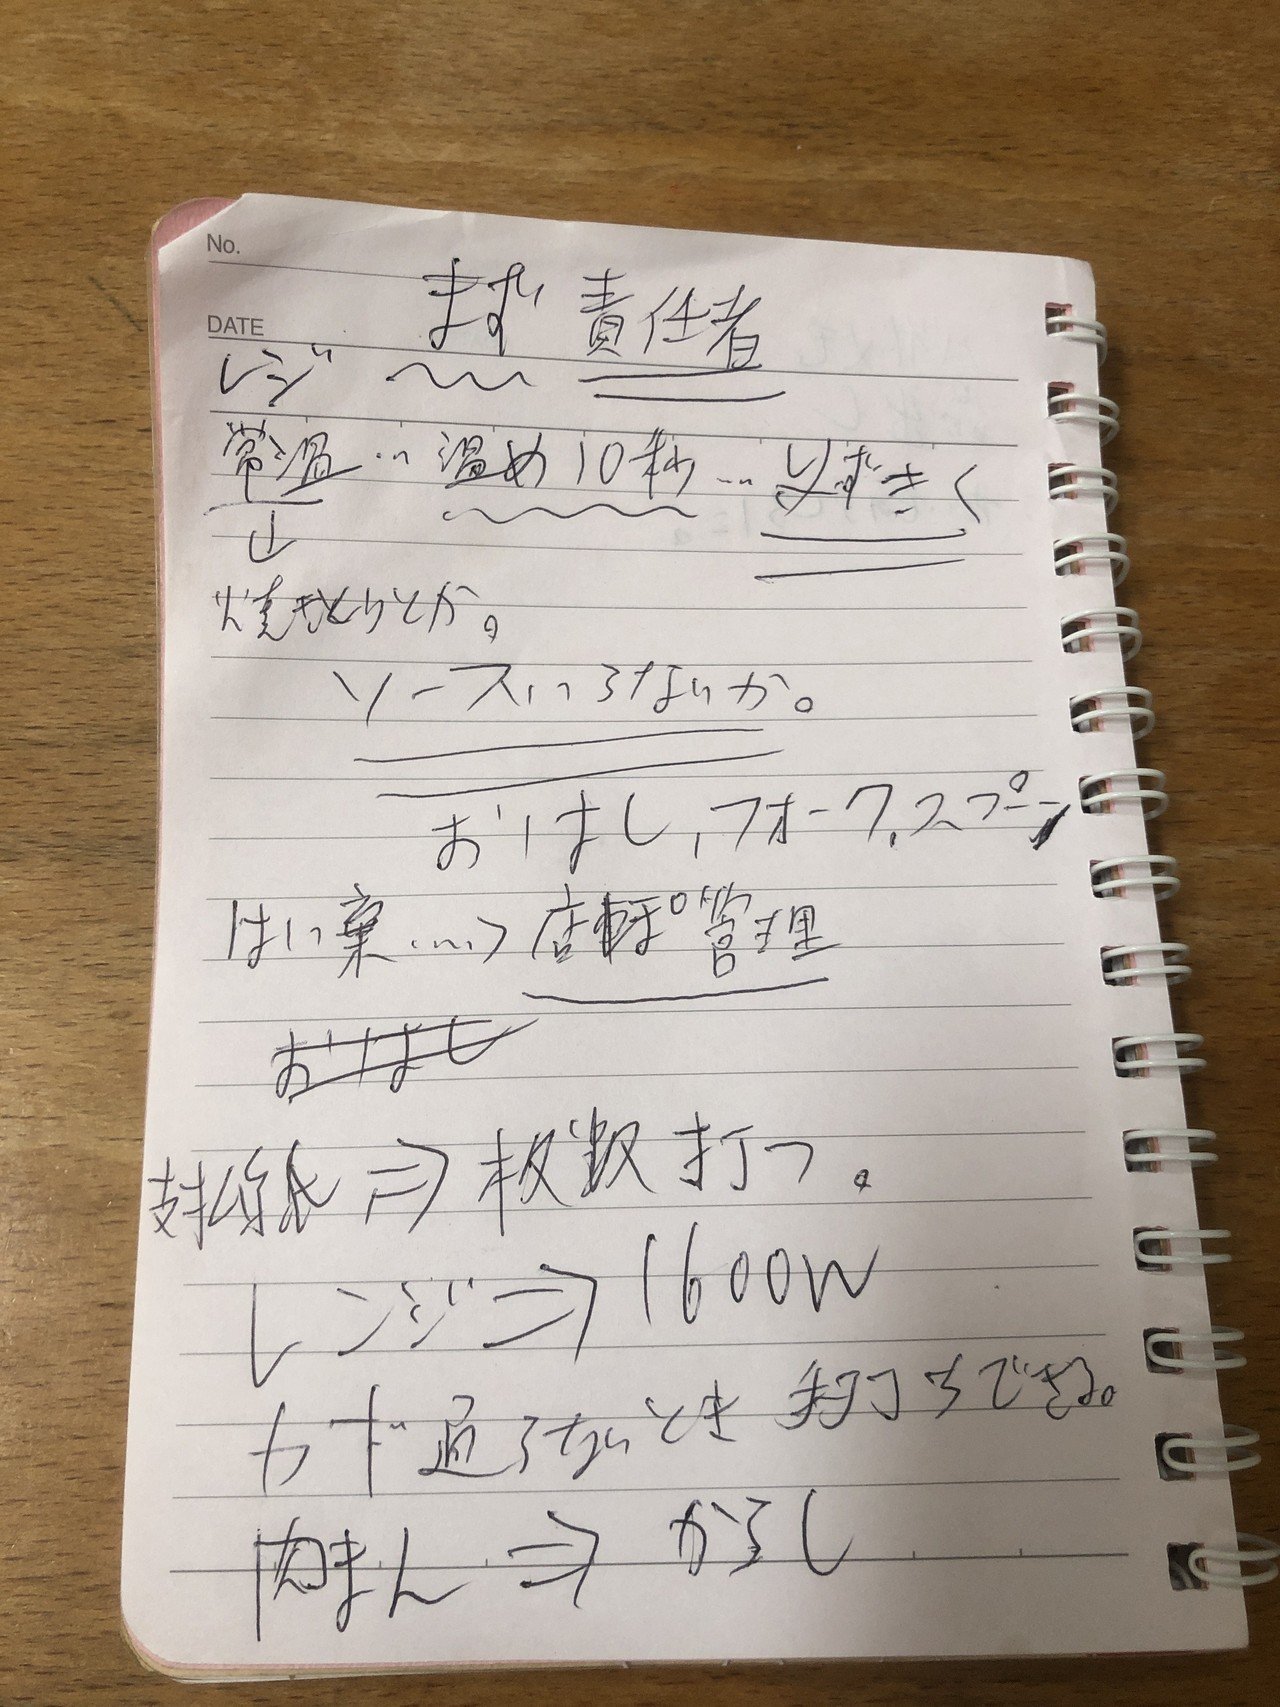 No.
まず 責任者
DATE
レジ
常温 … 温め10秒 … 必ずきく
↓
焼きとりとか。
ソースいらないか。
おはし,フォーク,スプーン
はい棄 …→ 管理
おはし
支払 ⇒ 枚数打つ。
レンジ⇒1600W
カード通らないとき 手打ちできる。
肉まん ⇒ からし